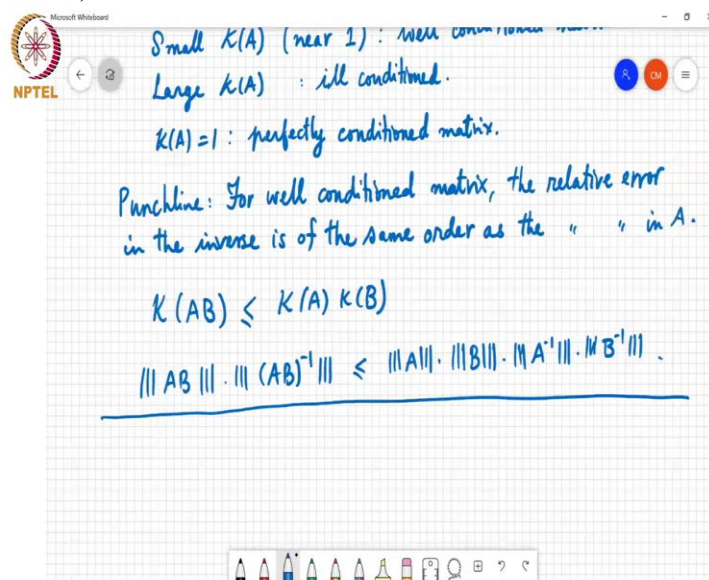 Microsoft Whiteboard
NPTEL
CM
Small K(A) (near 1) : well conditioned
Large K(A) : ill conditioned.
K(A) = 1 : perfectly conditioned matrix.
Punchline: For well conditioned matrix, the relative error
in the inverse is of the same order as the " " in A.
K(AB) ≤ K(A) K(B)
||| AB ||| · ||| (AB)⁻¹ ||| ≤ ||| A ||| · ||| B ||| · ||| A⁻¹ ||| · ||| B⁻¹ ||| .